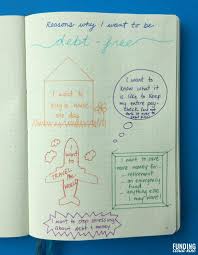 Reasons why I want to be
debt-free
I want to
buy a house
one day
I want to
know what it
is like to keep
my entire pay-
I want to
TRAVEL the
WORLD
I want to save
more money for...
retirement
an emergency
fund
anything else
I may want!
I want to stop stressing
about debt & money
FUNDING